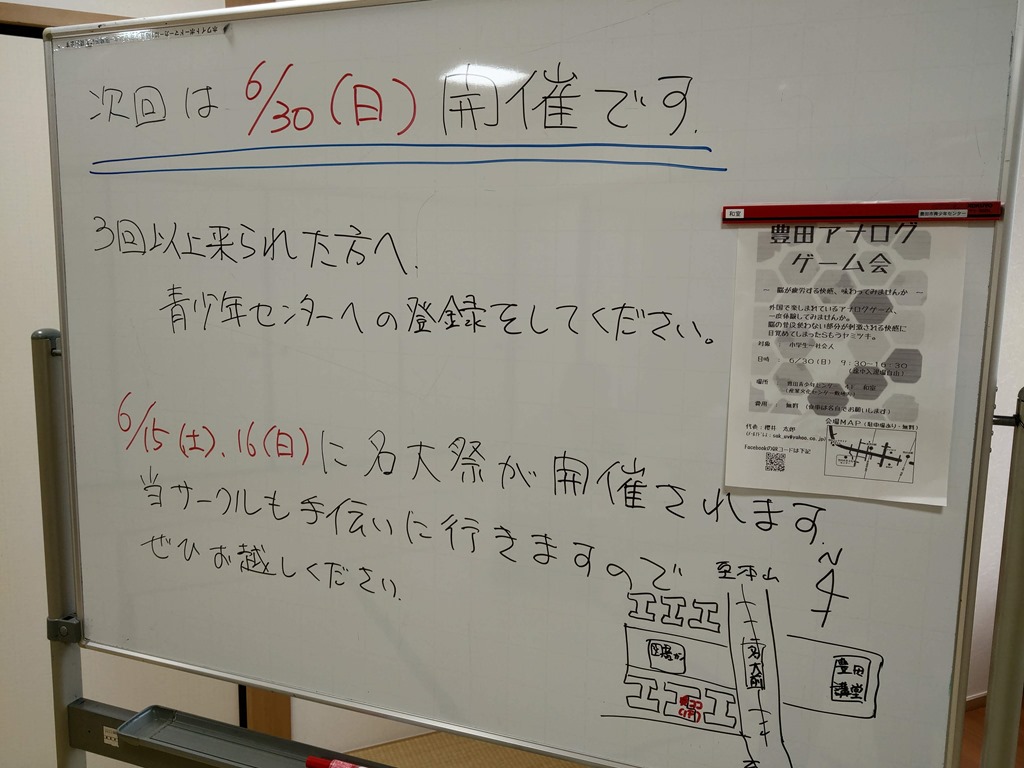 次回は 6/30(日) 開催です.
3回以上来られた方へ.
青少年センターへの登録をしてください。
6/15(土)、16(日)に名大祭が開催されます.
当サークルも手伝いに行きますので
ぜひお越しください.
和室
豊田市青少年センター
豊田アナログ
ゲーム会
― 脳が疲労する快感、味わってみませんか ―
外国で楽しまれているアナログゲーム、
一度体験してみませんか。
脳の普段使わない部分が刺激される快感に
目覚めてしまったらもうヤミツキ。
対象 小学生~社会人
日時 6/30(日) 9:30-16:30
(途中入退場自由)
場所 豊田青少年センター 和室
費用 無料 (食事は各自でお願いします)
会場MAP (駐車場あり・無料)
代表:櫻井 太郎
FacebookのQRコードは下記
至本山
N
工工工
図書かン
名大前
豊田
講堂
工工工